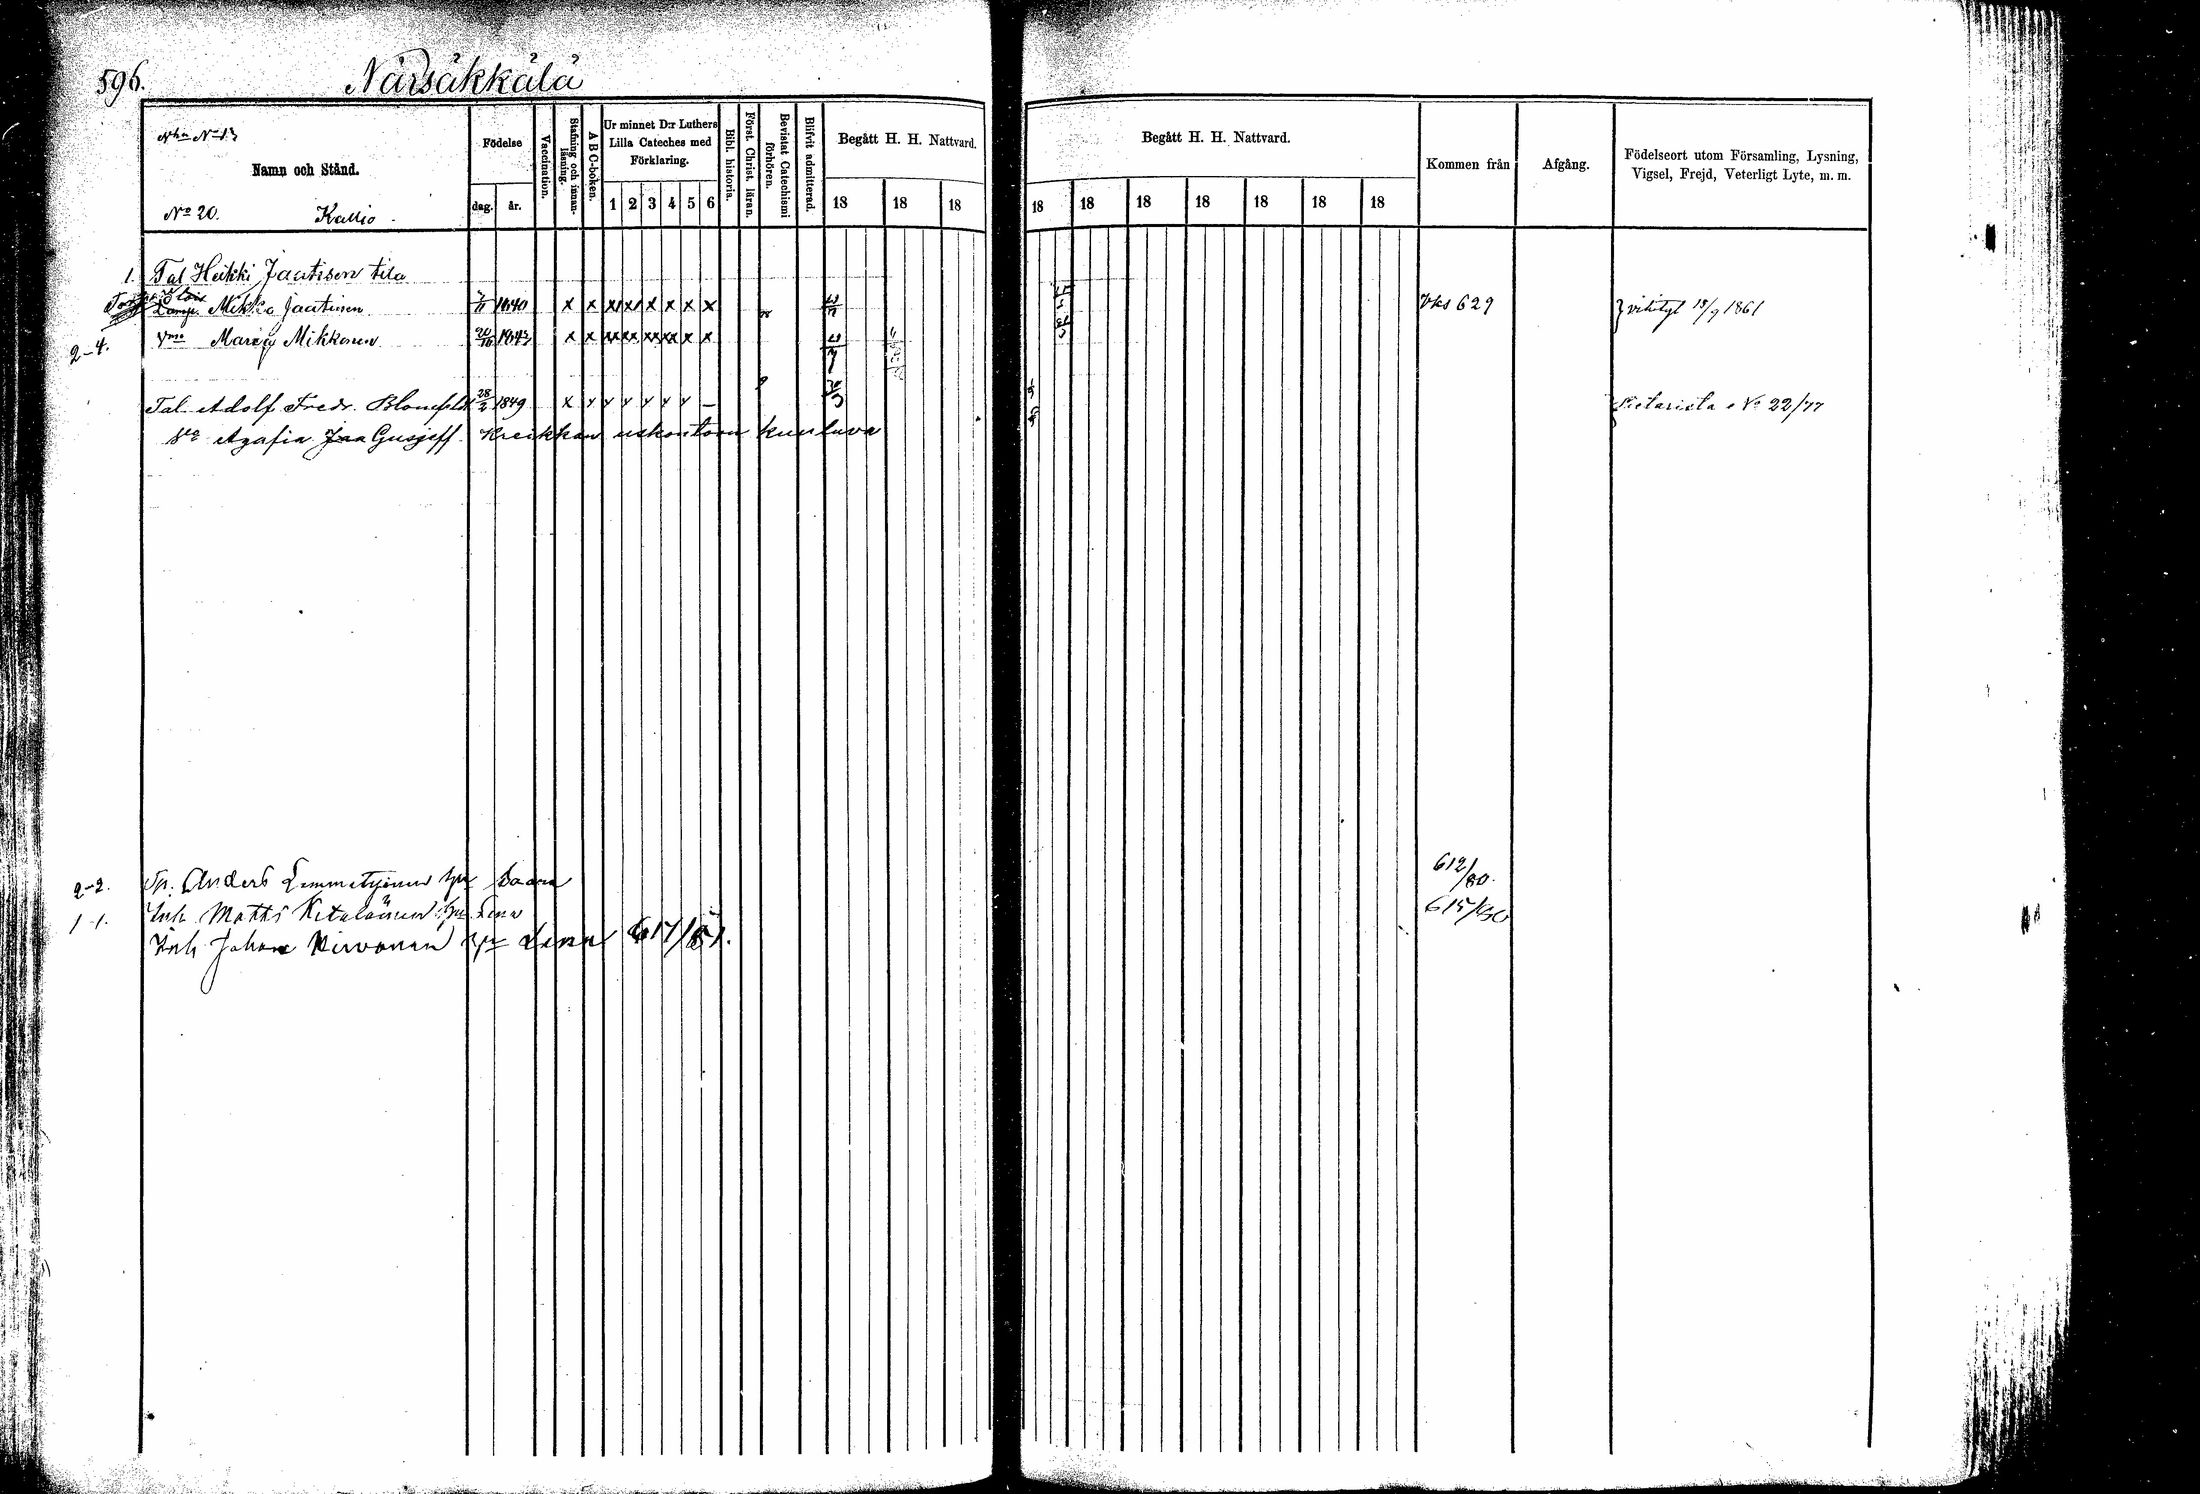 596.
Närsäkkälä
Nha No 13
Namn och Stånd.
No 20. Kallio
Födelse
dag. år.
Vaccination.
Stafning och innan-läsning.
A B C-boken.
Ur minnet D:r Luthers Lilla Cateches med Förklaring.
1 2 3 4 5 6
Bibl. historia.
Först. Christ. läran.
Bevistat Catechismi förhören.
Blifvit admitterad.
Begått H. H. Nattvard.
18 18 18
Begått H. H. Nattvard.
18 18 18 18 18 18 18
Kommen från
Afgång.
Födelseort utom Församling, Lysning, Vigsel, Frejd, Veterligt Lyte, m. m.
1. Tal Heikki Jaatisen tila
Mikko Jaatinen 1840 x x x x x x x x Vks 629 vihityt 18/9 1861
2-4. Vmo Maria Mikkonen 20/10 1843 x x xx xx xx xx x x
Tal Adolf Fredr. Blomfeld 28/2 1849 x x x x x x x – Pietarista No 22/77
Agafia Jaa Gusjeff. Kreikkan uskontoon kuuluva
2-2. Anders Lemmetyinen hu Saara 612/80.
1-1. Inh Matts Kitaläinen hu Lena 615/80
Inh Johan Hirvonen hu Lena 617/81.